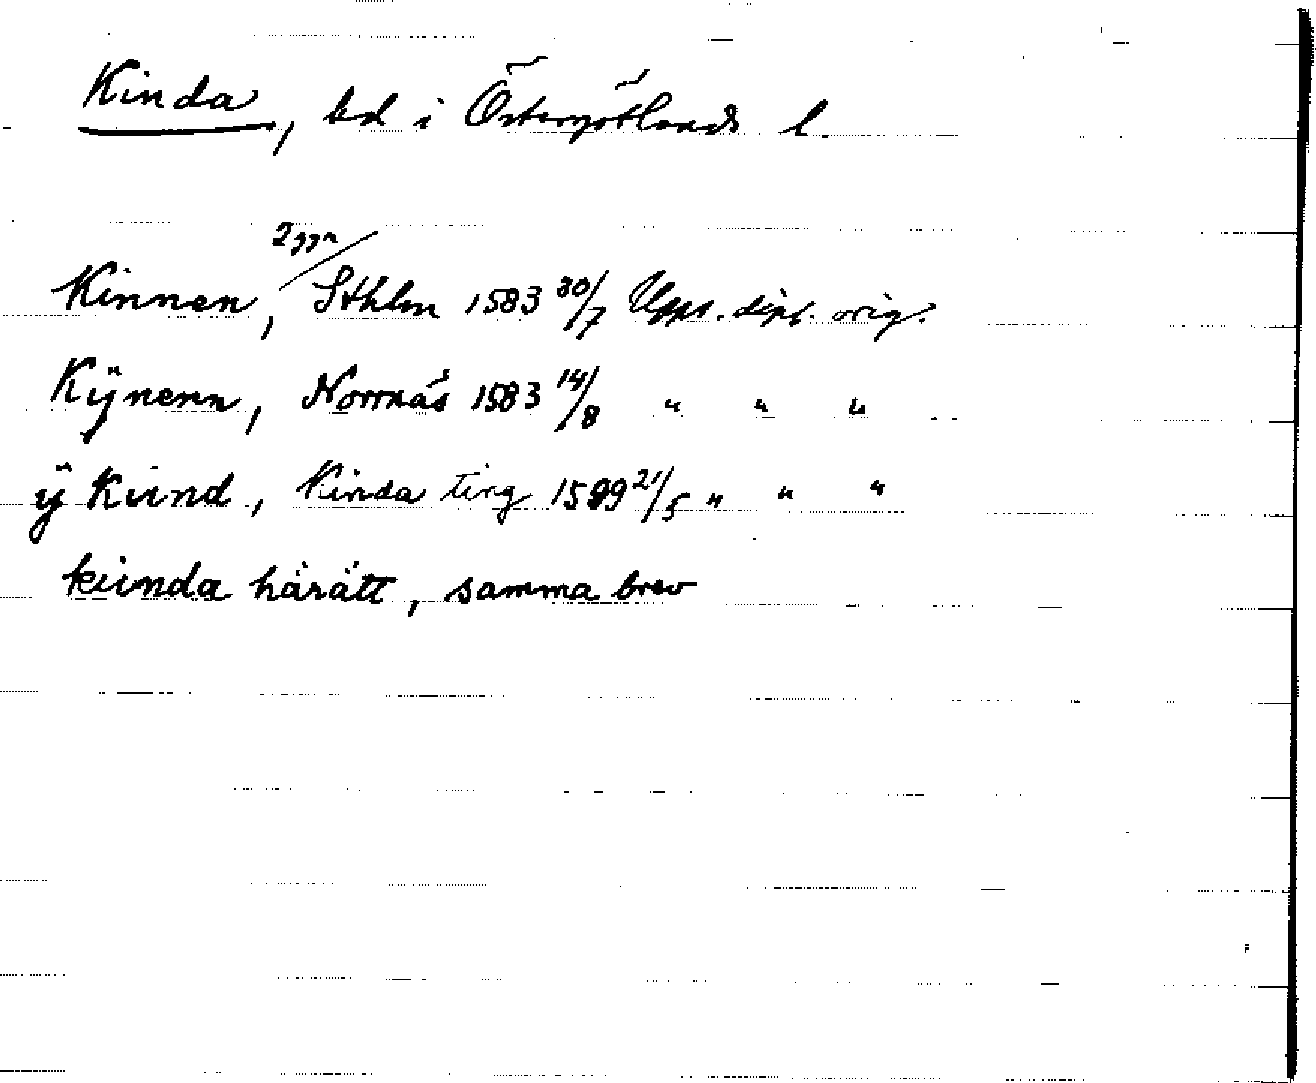 Kinda, hd i Östergötlands l.
2 ggr
Kinnen, Sthlm 1583 30/7 Upps. dipl. orig.
Kÿnenn, Norrnäs 1583 14/8 " " "
ÿ Kind, Kinda ting 1599 21/5 " " "
kinda härätt, samma brev